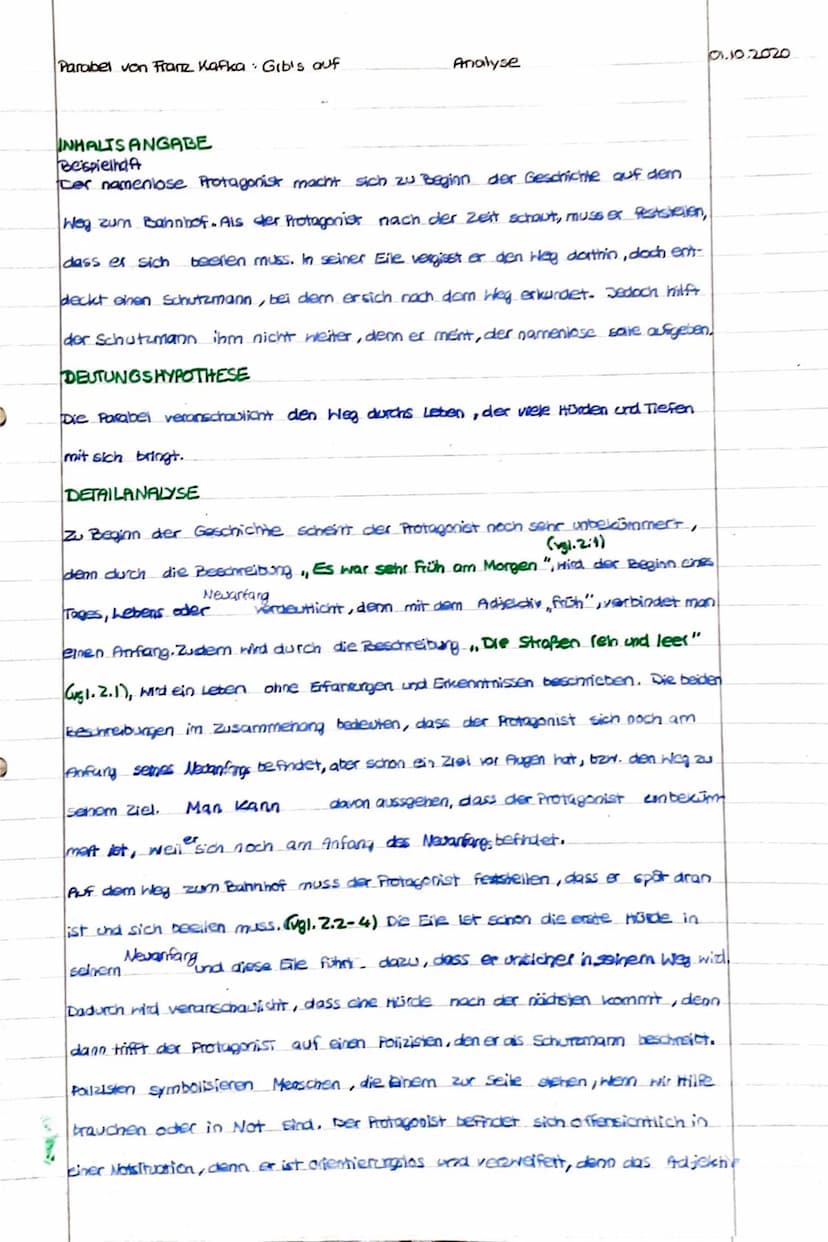 Parabel von Franz Kafka : Gib's auf Analyse 01.10.2020
INHALTSANGABE
Beispielhaft
Der namenlose Protagonist macht sich zu Beginn der Geschichte auf dem
Weg zum Bahnhof. Als der Protagonist nach der Zeit schaut, muss er feststellen,
dass er sich beeilen muss. In seiner Eile vergisst er den Weg dorthin, doch ent-
deckt einen Schutzmann, bei dem er sich nach dem Weg erkundet. Jedoch hilft
der Schutzmann ihm nicht weiter, denn er meint, der namenlose solle aufgeben.
DEUTUNGSHYPOTHESE
Die Parabel veranschaulicht den Weg durchs Leben, der viele Hürden und Tiefen
mit sich bringt.
DETAILANALYSE
Zu Beginn der Geschichte scheint der Protagonist noch sehr unbekümmert,
(vgl. Z.1)
denn durch die Beschreibung „Es war sehr früh am Morgen", wird der Beginn eines
Neuanfang
Tages, Lebens oder verdeutlicht, denn mit dem Adjektiv „früh", verbindet man
einen Anfang. Zudem wird durch die Beschreibung „Die Straßen rein und leer"
(vgl. Z.1), wird ein Leben ohne Erfahrungen und Erkenntnissen beschrieben. Die beiden
Beschreibungen im Zusammenhang bedeuten, dass der Protagonist sich noch am
Anfang seines Neuanfangs befindet, aber schon ein Ziel vor Augen hat, bzw. den Weg zu
seinem Ziel. Man kann davon aussgehen, dass der Protagonist unbeküm-
mert ist, weil er sich noch am Anfang des Neuanfangs befindet.
Auf dem Weg zum Bahnhof muss der Protagonist feststellen, dass er spät dran
ist und sich beeilen muss. (vgl. Z.2-4) Die Eile ist schon die erste Hürde in
seinem Neuanfang und diese Eile führt dazu, dass er unsicher in seinem Weg wird.
Dadurch wird veranschaulicht, dass eine Hürde nach der nächsten kommt, denn
dann trifft der Protagonist auf einen Polizisten, den er als Schutzmann beschreibt.
Polizisten symbolisieren Menschen, die einem zur Seite stehen, wenn wir Hilfe
brauchen oder in Not sind. Der Protagonist befindet sich offensichtlich in
einer Notsituation, denn er ist orientierungslos und verzweifelt, denn das Adjektiv